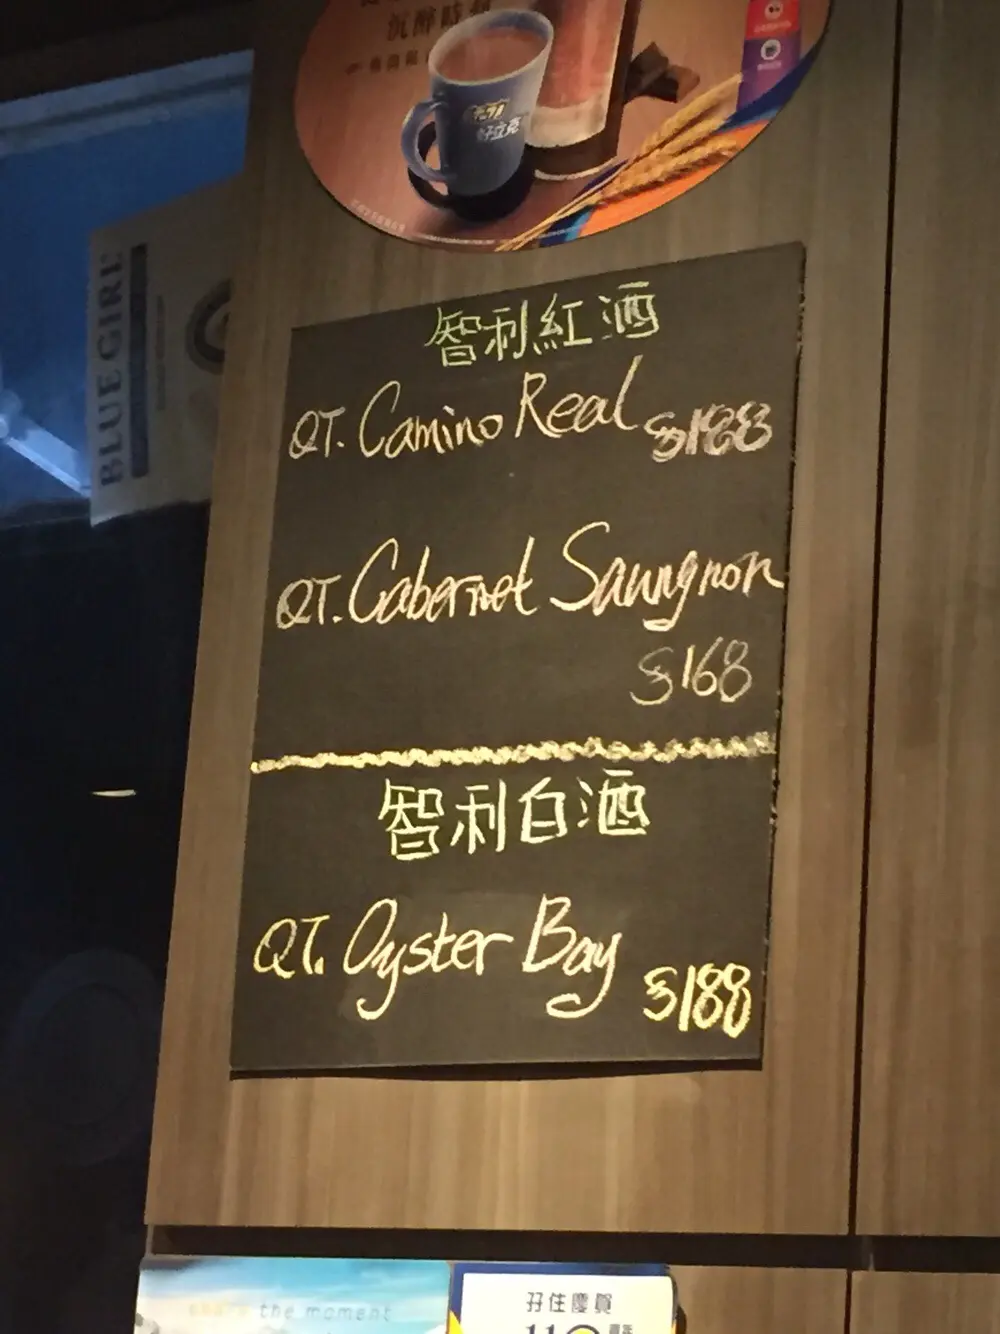 沉醉時刻
好立克
BLUE GIRL
智利紅酒
QT. Camino Real $188
QT. Cabernet Sauvgnon
$168
智利白酒
QT. Oyster Bay $188
the moment
孖住慶賀
110